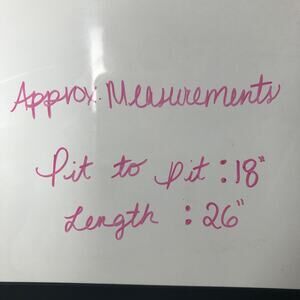 Approx. Measurements
Pit to Pit : 18"
Length : 26"